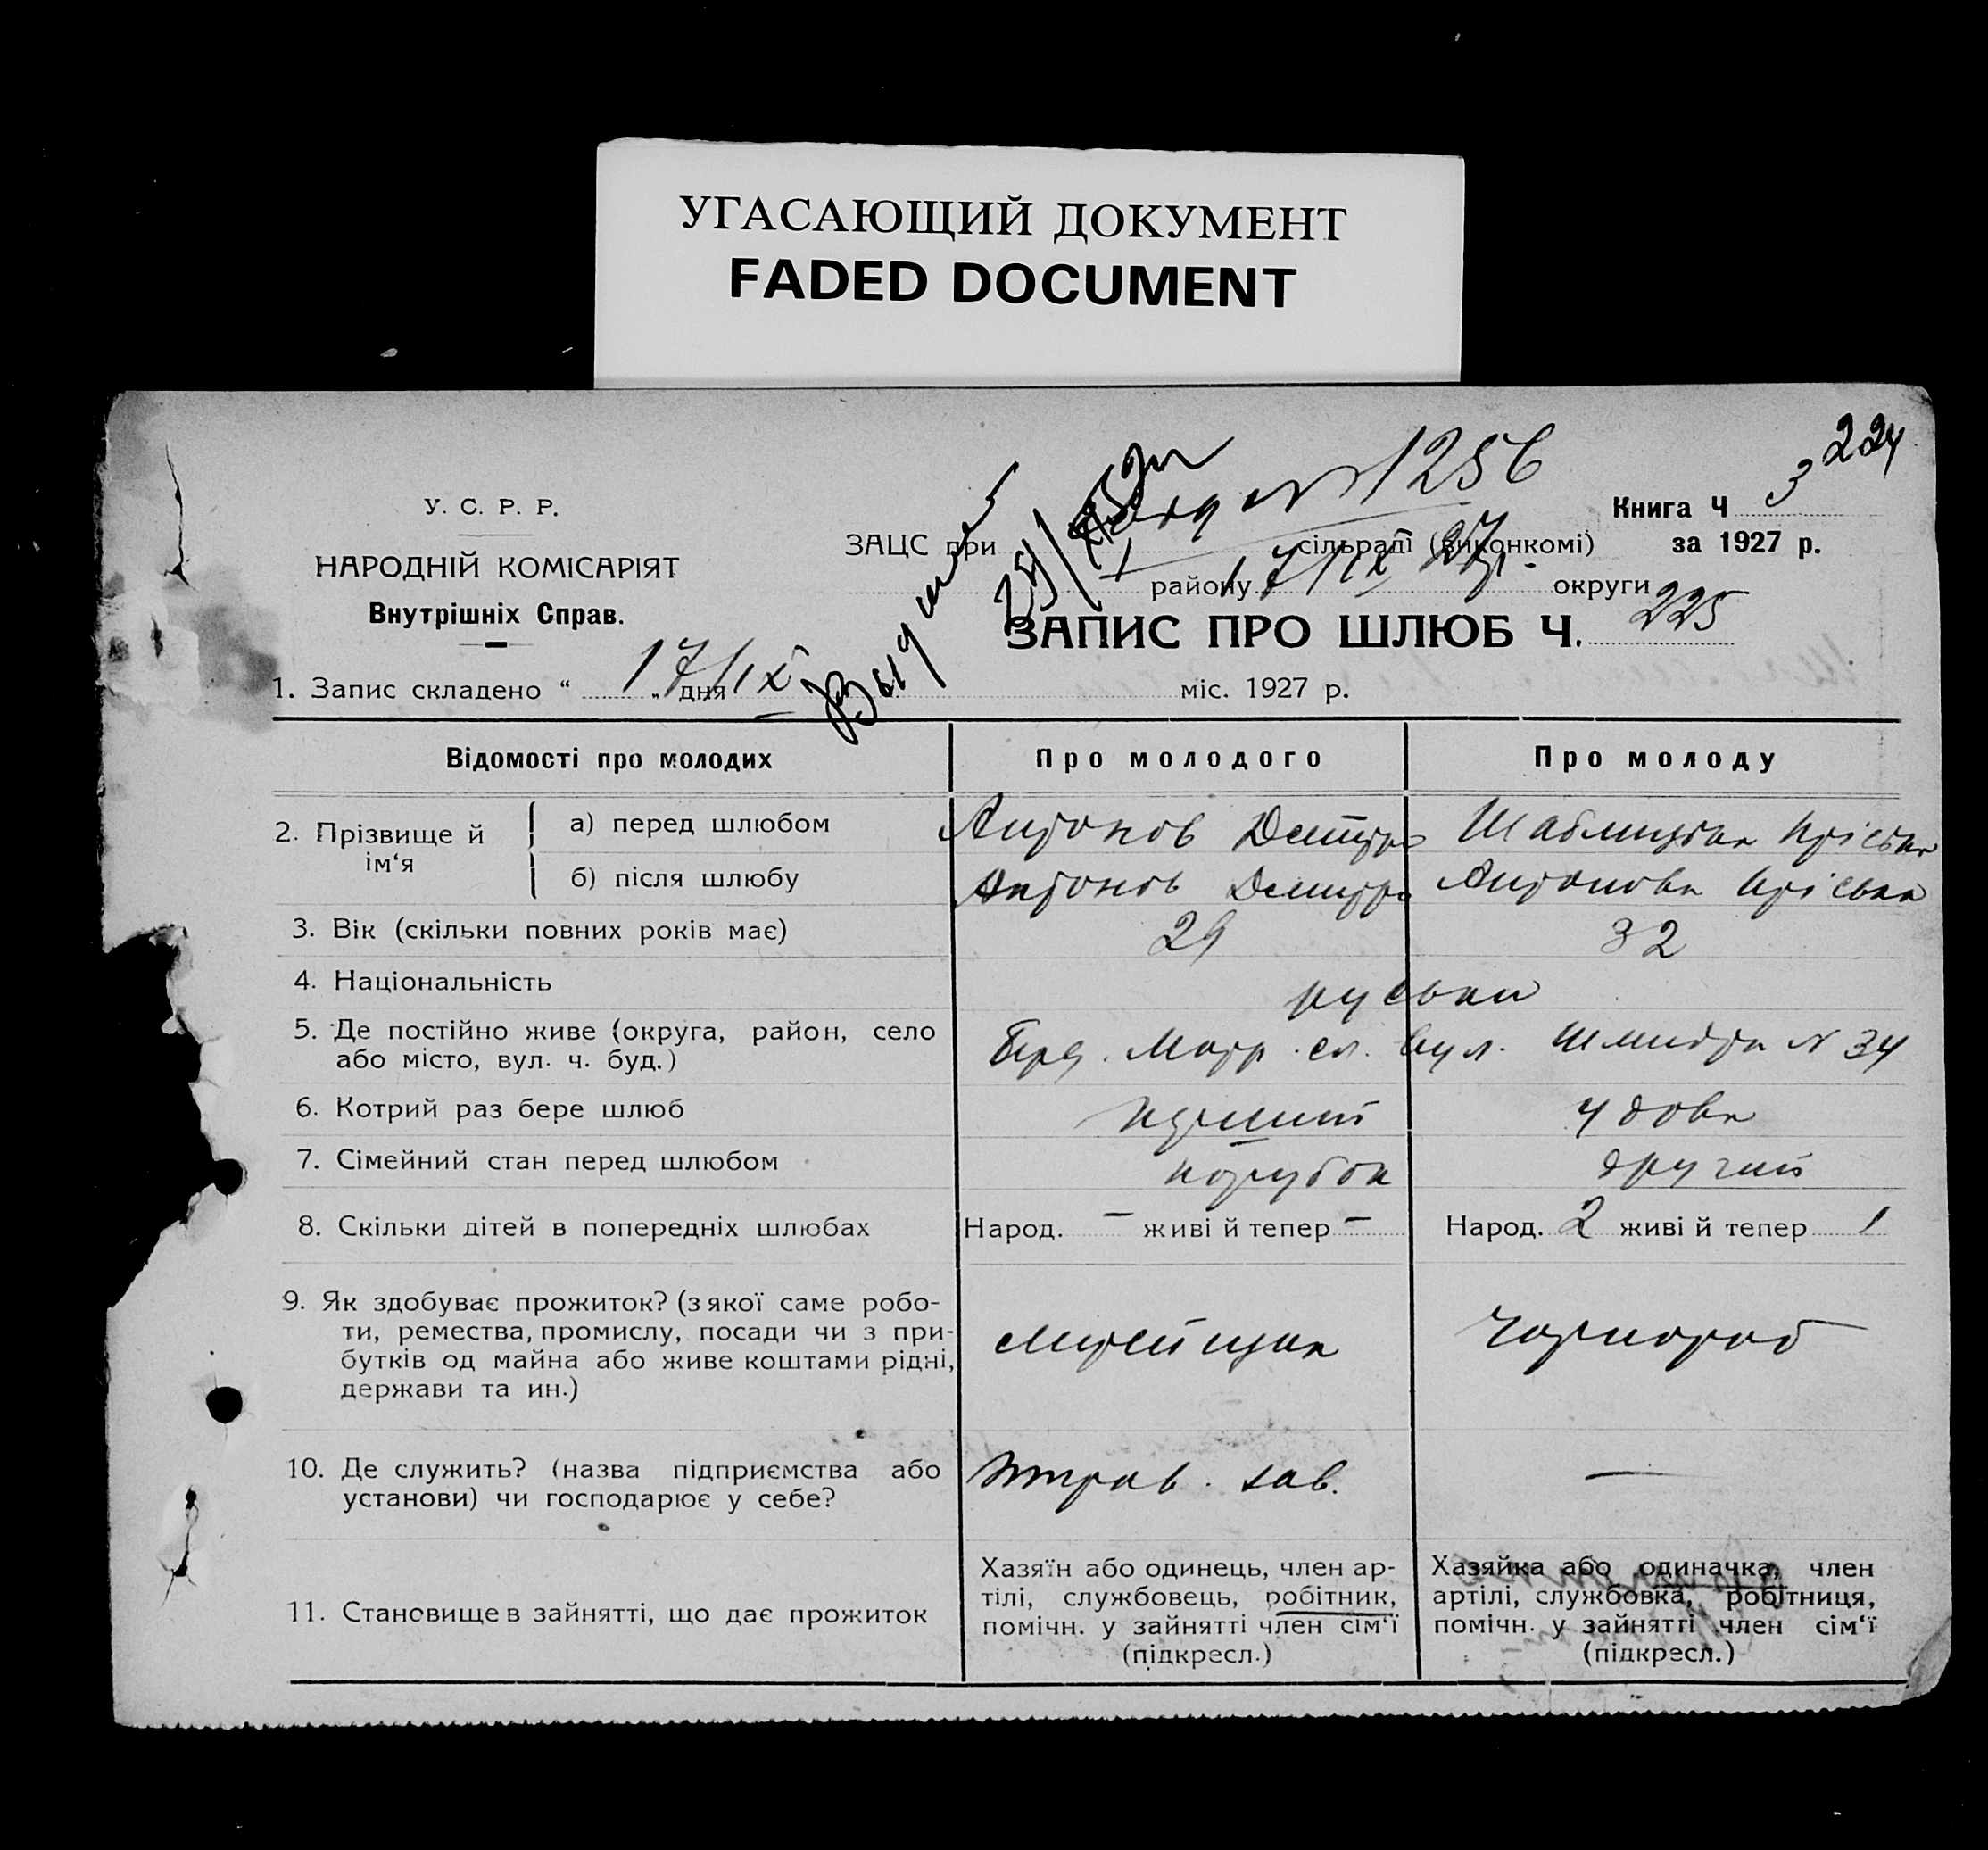 УГАСАЮЩИЙ ДОКУМЕНТ
FADED DOCUMENT
224
№ 1256
У. С. Р. Р.
НАРОДНІЙ КОМІСАРІЯТ
Внутрішніх Справ.
Книга Ч 3
за 1927 р.
ЗАЦС при сільраді (виконкомі)
району 17/IX 27 округи
ЗАПИС ПРО ШЛЮБ Ч. 225
1. Запис складено “ 17/IX „ дня міс. 1927 р.
Відомості про молодих Про молодого Про молоду
2. Прізвище й ім‘я
а) перед шлюбом Антонов Дмитро
б) після шлюбу Антонов Дмитро Антонова Пріська
3. Вік (скільки повних років має) 29 32
4. Національність руськи
5. Де постійно живе (округа, район, село
або місто, вул. ч. буд.) вул. Шмидта № 34
6. Котрий раз бере шлюб перший удова
7. Сімейний стан перед шлюбом парубок другий
8. Скільки дітей в попередніх шлюбах Народ. – живі й тепер – Народ. 2 живі й тепер 1
9. Як здобуває прожиток? (з якої саме робо-
ти, ремества, промислу, посади чи з при-
бутків од майна або живе коштами рідні,
держави та ин.)
чорнороб
10. Де служить? (назва підприємства або
установи) чи господарює у себе?
зав. —
11. Становище в зайнятті, що дає прожиток
Хазяїн або одинець, член ар-
тілі, службовець, робітник,
помічн. у зайнятті член сім‘ї
(підкресл.)
Хазяйка або одиначка, член
артілі, службовка, робітниця,
помічн. у зайнятті член сім‘ї
(підкресл.)